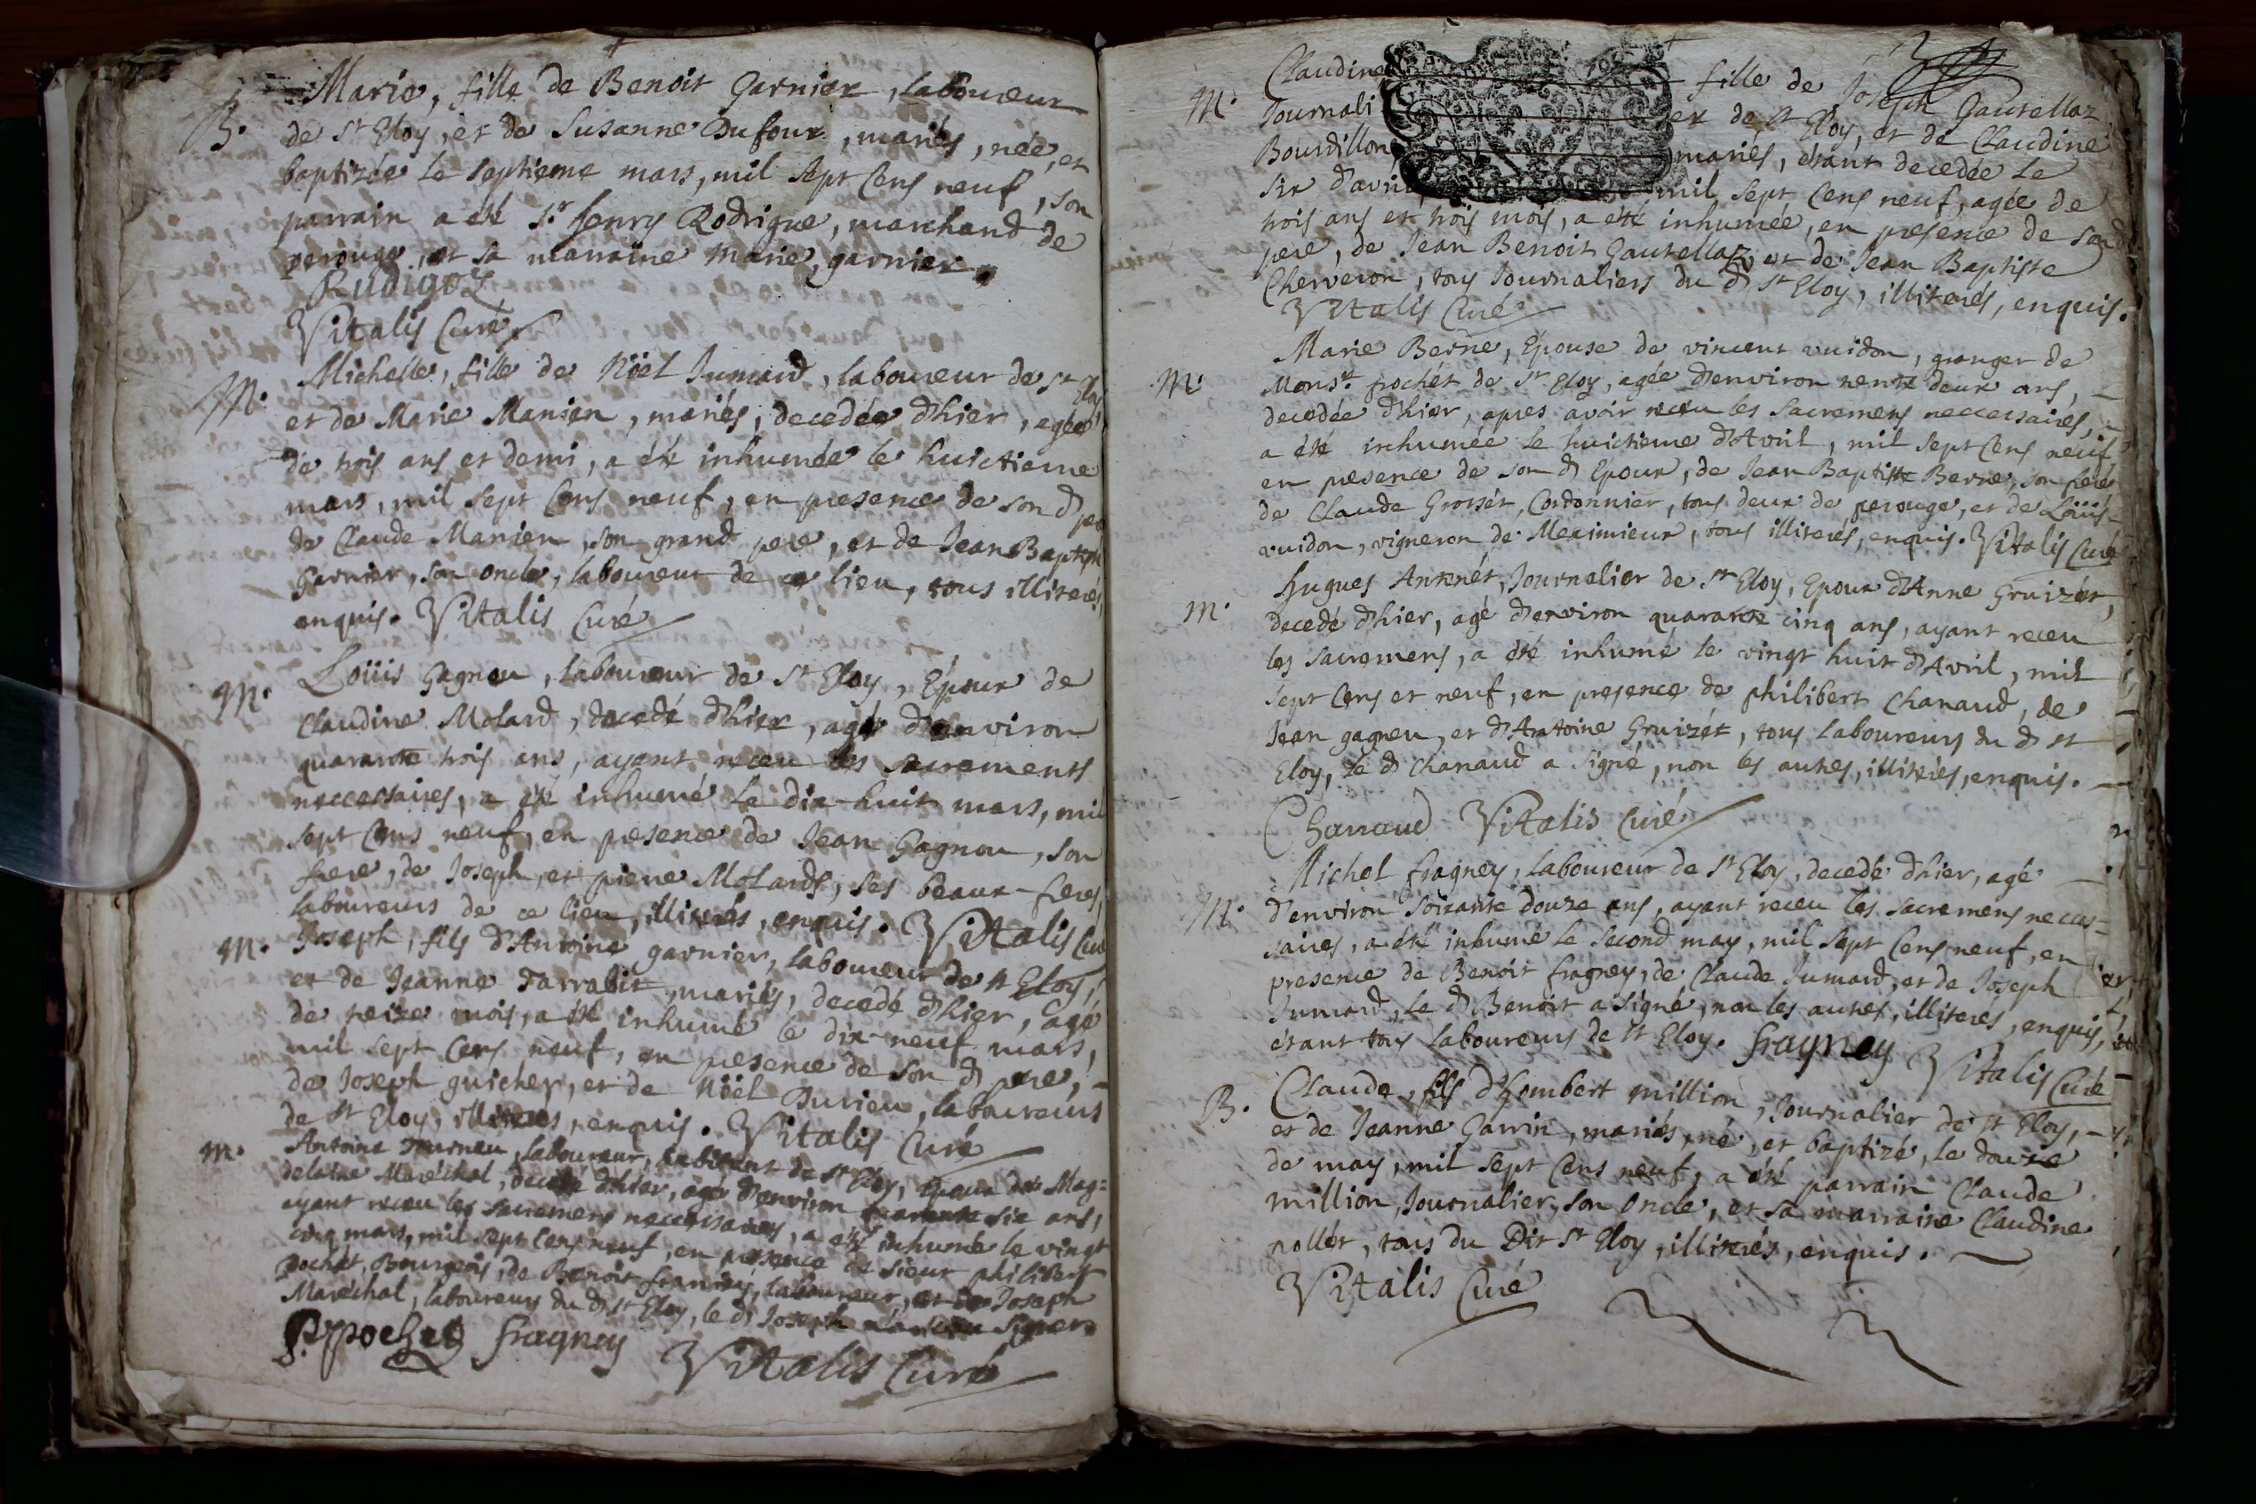 Marie, fille de Benoit Garnier, laboureur
B. de St Eloy, et de Susanne Dufour, mariés, née, et
baptizée le septieme mars, mil sept cens neuf, son
parrain a été Sr. henry Rodrigue, marchand de
perouge, et sa marraine Marie, garnier.
Rudigoz
Vitalis Curé
M. Michelle, fille de Nöel Jumard, laboureur de St Eloy
et de Marie Manien, mariés, decedée d'hier, agée
de trois ans et demi, a été inhumée le huictieme
mars, mil sept cens neuf, en presence de son d pere
de Claude Manien, son grand pere, et de Jean Baptiste
Garnier, son oncle, laboureur de ce lieu, tous illiterés,
enquis. Vitalis Curé
M. Loüis Gagneu, laboureur de St Eloy, Epoux de
Claudine Molard, decedé d'hier, agé d'environ
quarante trois ans, ayant receu les sacrements
neccessaires, a été inhumé le dix-huit mars, mil
sept cens neuf, en presence de Jean Gagneu, son
frere, de Joseph, et pierre Molards, ses beaux-freres,
laboureurs de ce lieu, illiterés, enquis. Vitalis Curé
M. Joseph, fils d'Antoine garnier, laboureur de St Eloy,
et de Jeanne Farrabit, mariés, decedé d'hier, agé
de treize mois, a été inhumé le dix-neuf mars,
mil sept cens neuf, en presence de son d pere,
de Joseph guicher, et de Nöel Durieu, laboureurs
de St Eloy, illiterés, enquis. Vitalis Curé
M. Antoine Journeu, laboureur, habitant de St Eloy, Epoux de Mag=
delaine Maréchal, decedé d'hier, agé d'environ quarante six ans,
ayant receu les sacremens neccessaires, a été inhumé le vingt
cinq mars, mil sept cens neuf, en presence de sieur philibert
pochet, Bourgeois, de Benoit fragney, laboureur, et de Joseph
Maréchal, laboureurs du d St Eloy, le d Joseph
P. pochet fragney Vitalis Curé
Claudine fille de Joseph Gautellaz
M. Journali er de St Eloy, et de Claudine
Bourdillon mariés, étant decedée le
six d'avril mil sept cens neuf, agée de
trois ans et trois mois, a été inhumée, en presence de son d
pere, de Jean Benoit Gautellaz, et de Jean Baptiste
Cherveron, tous Journaliers du d St Eloy, illiterés, enquis.
Vitalis Curé
Marie Berne, Epouse de vincent vuidon, granger de
M. Monsr. frochét de St Eloy, agée d'environ trente deux ans,
decedée d'hier, apres avoir receu les sacremens neccessaires,
a été inhumée le huictieme d'Avril, mil sept cens neuf
en presence de son d Epoux, de Jean Baptiste Berne, son frere
de Claude Grossét, Cordonnier, tous deux de perouge, et de Loüis
vuidon, vigneron de Meximieux, tous illiterés, enquis. Vitalis Curé
hugues Antenét, Journalier de St Eloy, Epoux d'Anne Gruizét,
M. decedé d'hier, agé d'environ quarante cinq ans, ayant receu
les sacremens, a été inhumé le vingt huit d'Avril, mil
sept cens et neuf, en presence de philibert Chanaud, de
Jean gagneu, et d'Antoine Gruizét, tous laboureurs du d St
Eloy, le d Chanaud a signé, non les autres, illiterés, enquis.
Chanaud Vitalis Curé
Michel fragney, laboureur de St Eloy, decedé d'hier, agé
M. d'environ soixante douze ans, ayant receu les sacremens neces-
saires, a été inhumé le second may, mil sept cens neuf, en
presence de Benoit fragney, de Claude Jumard, et de Joseph
Jumard, le d Benoit a signé, non les autres, illiterés, enquis,
étant tous laboureurs de St Eloy. fragney Vitalis Curé
B. Claude, fils d'hombert million, Journalier de St Eloy,
et de Jeanne Garrin, mariés, né, et baptizé, le douze
de may, mil sept cens neuf, a été parrain Claude
million, Journalier, son oncle, et sa marraine Claudine
pollét, tous du Dit St Eloy, illiterés, enquis.
Vitalis Curé